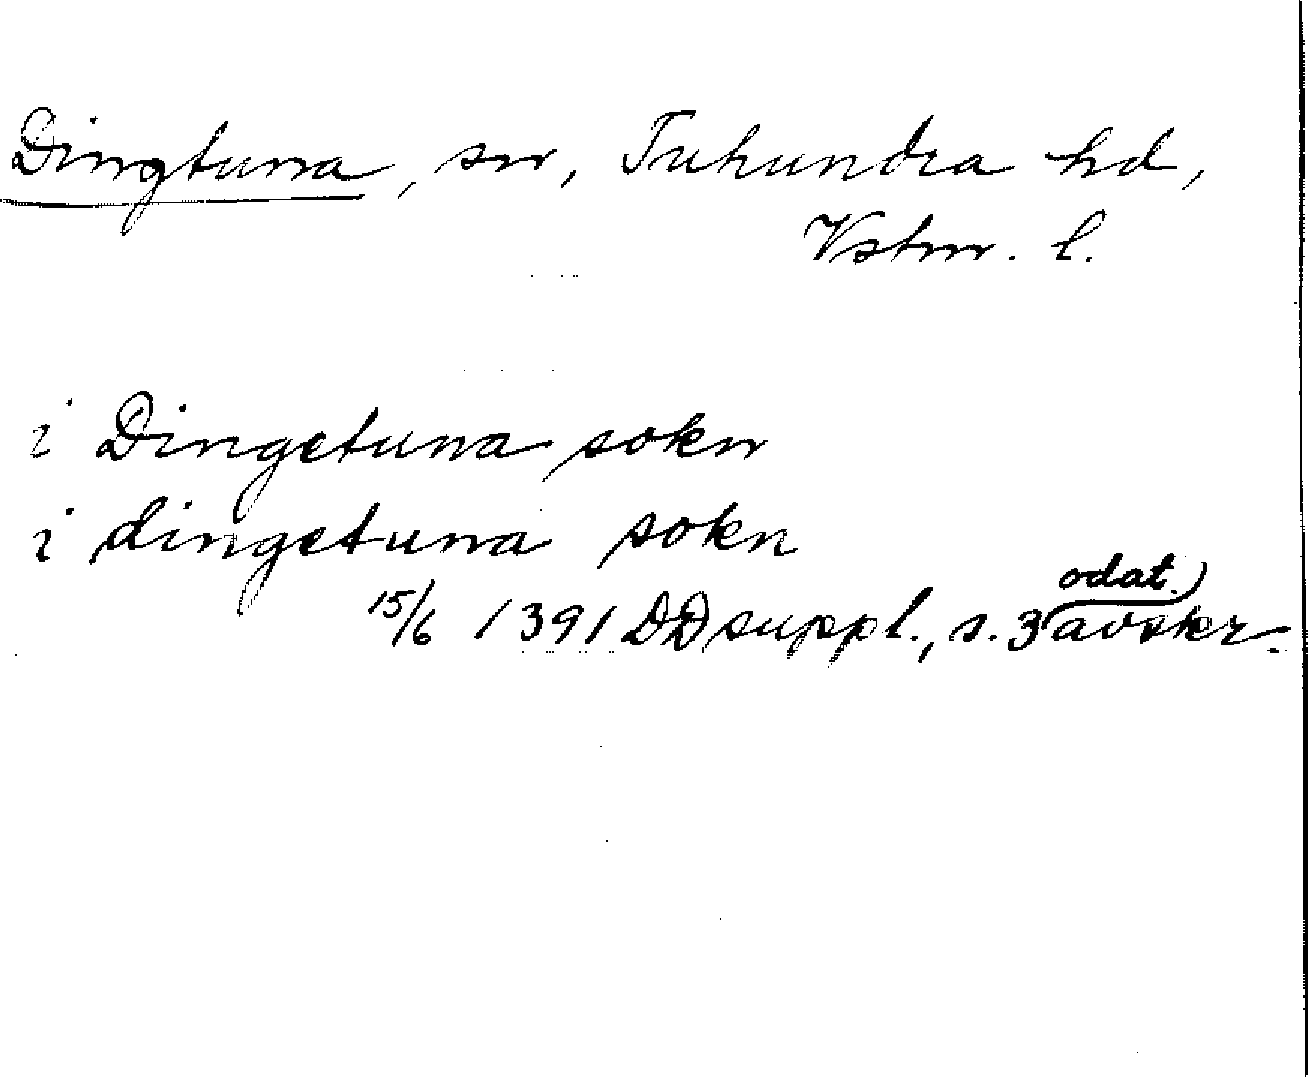 Dingtuna, sn, Tuhundra hd,
Vstm. l.
i Dingetuna sokn
i dingetuna sokn
odat.
15/6 1391 DD suppl., s. 3 avskr.